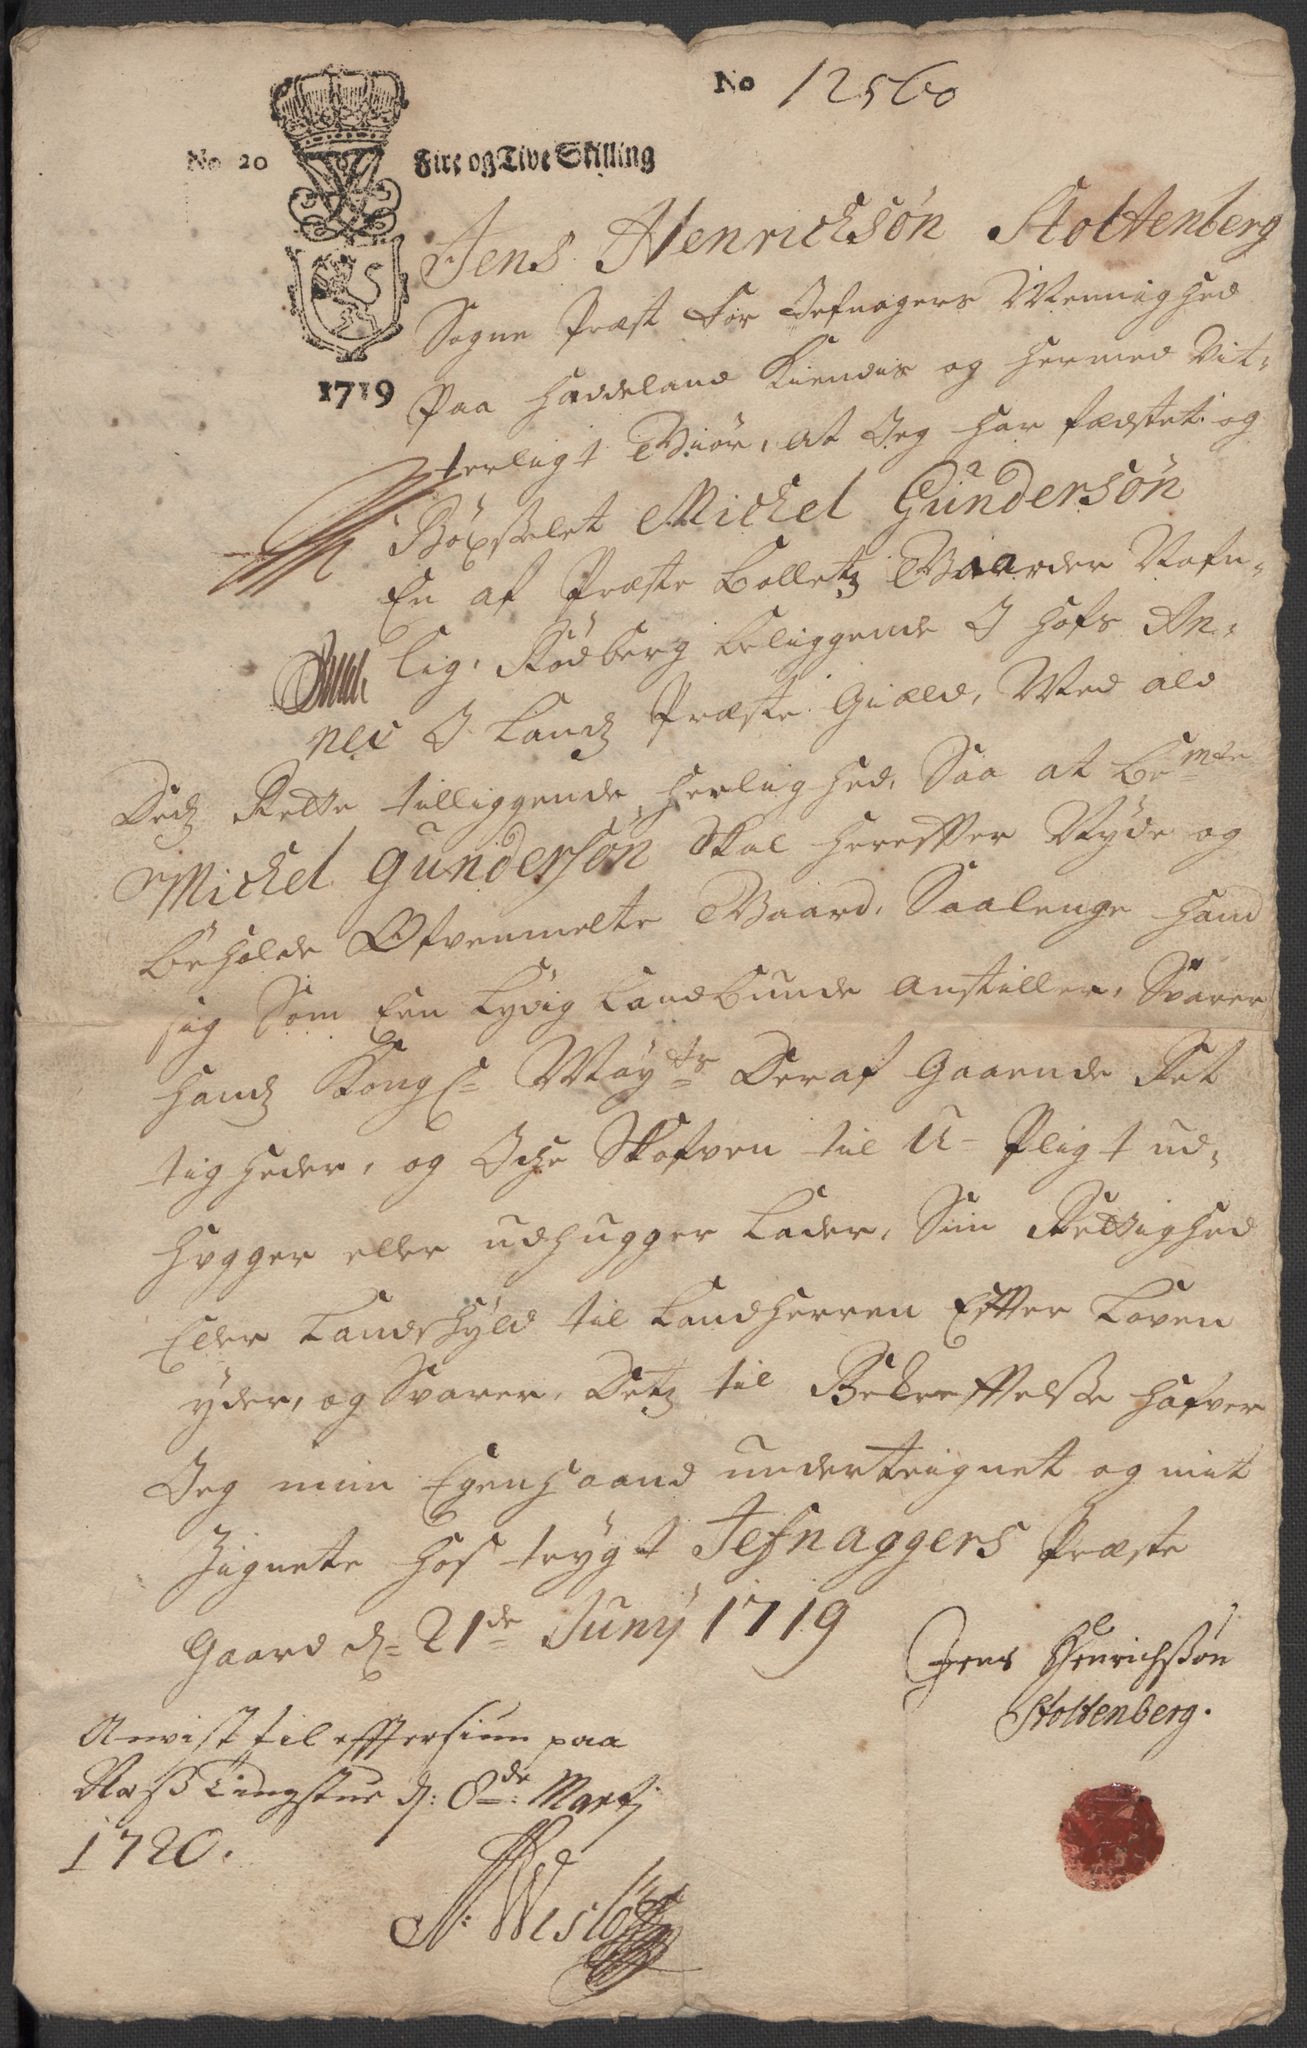 No 12560
No 20 Fire og Tive Skilling
1719
Jens Henrichsøn Stoltenberg
Sogne Præst for Jefnagers Menninghed
Paa Haddeland Kiendis og hermed Vit-
terligt Giør, at Jeg har fædstet og
Bøxselet Michel Gundersøn
En af Præste Bolletz Gaarder Nafn-
lig, Rødberg beliggende I Hofs An-
nex I Landz Præste Giæld, Med ald
Dedz Rette tilliggende Herlighed, Saa at Bemte
Michel Gundersøn Skal hereffter Nyde og
beholde Ofvenmelte Gaard, Saalenge hand
sig Som Een Lydig Landbunde anstiller, Svarer
Handz Kongl Mayts Deraf Gaaende Ret
tigheder, og Iche Skofven til U-Pligt ud-
hugger eller udhugger Lader, Sin Rettighed
Eller Landskyld til Landherren Effter Loven
yder, og Svarer, Detz til Bekrefftelse hafver
Jeg min Egenhaand underteignet og mit
Zignete hos trygt Jefnaggers Præste
Gaard d= 21de Juny 1719
Jens Henrichssøn
Stoltenberg.
Anvist til efftersiun paa
Næss Tingstue d: 8de: Martj
1720.